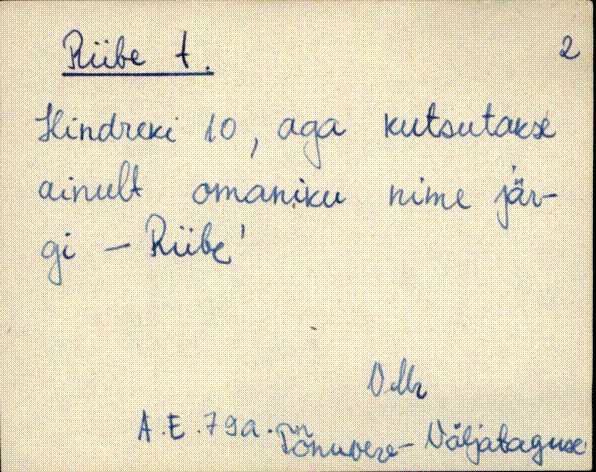 Rübe t. 2
Hindreki 10, aga kutsutakse
ainult omaniku nime jär-
gi - Rübe'
V.Mr
A.E. 79a. Tõnuvere - Väljataguse